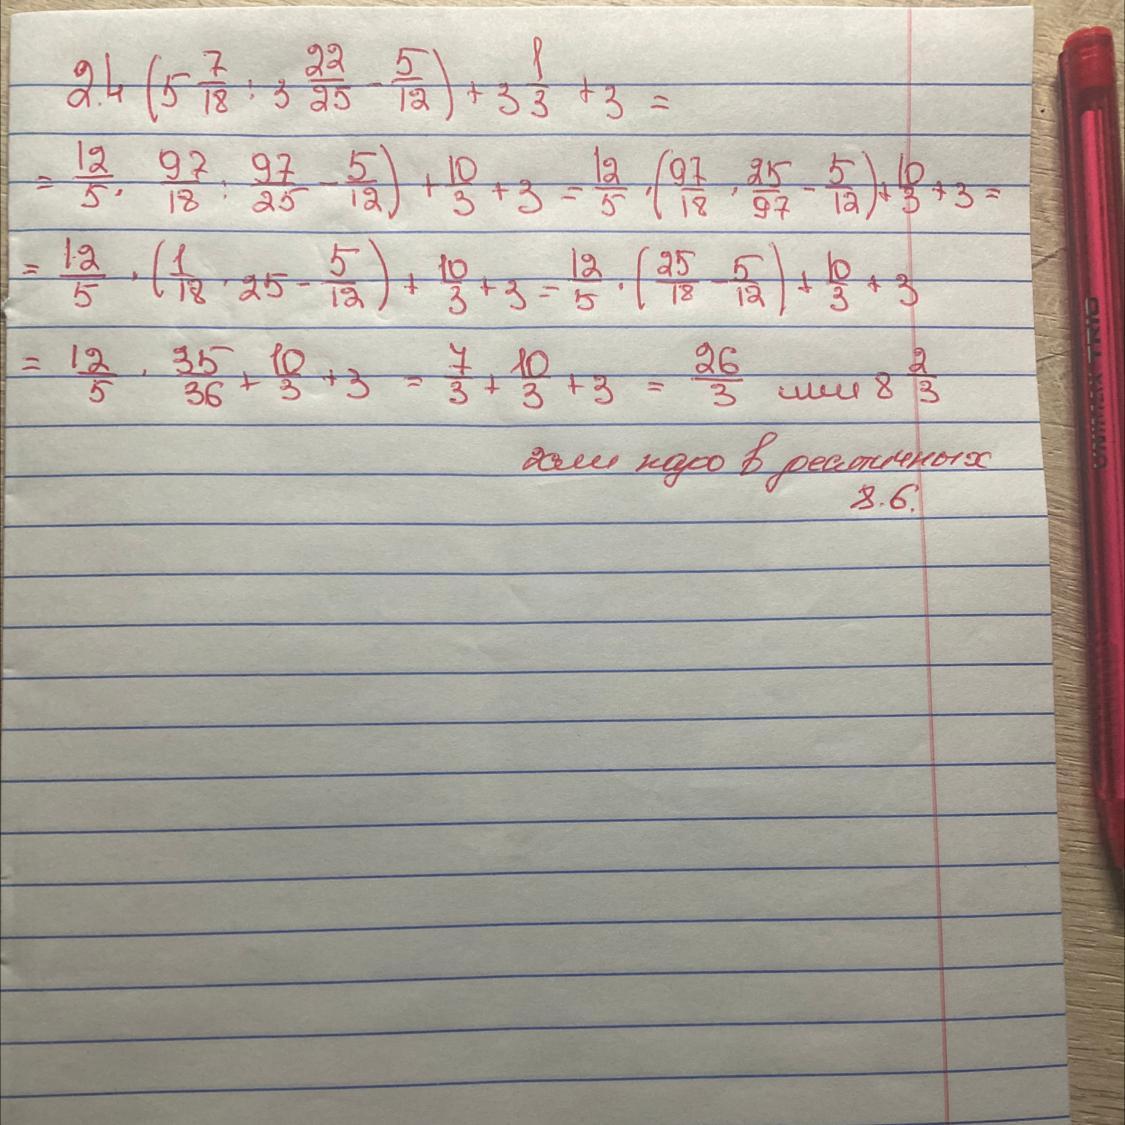 2.4 (5 7/18 : 3 22/25 - 5/12) + 3 1/3 + 3 =
= 12/5 · 97/18 : 97/25 - 5/12) + 10/3 + 3 = 12/5 · (97/18 · 25/97 - 5/12) + 10/3 + 3 =
= 12/5 · (1/18 · 25 - 5/12) + 10/3 + 3 = 12/5 · (25/18 - 5/12) + 10/3 + 3
= 12/5 · 35/36 + 10/3 + 3 = 7/3 + 10/3 + 3 = 26/3 или 8 2/3
если надо в десятичных
8.6.
UNIMAX TRIO